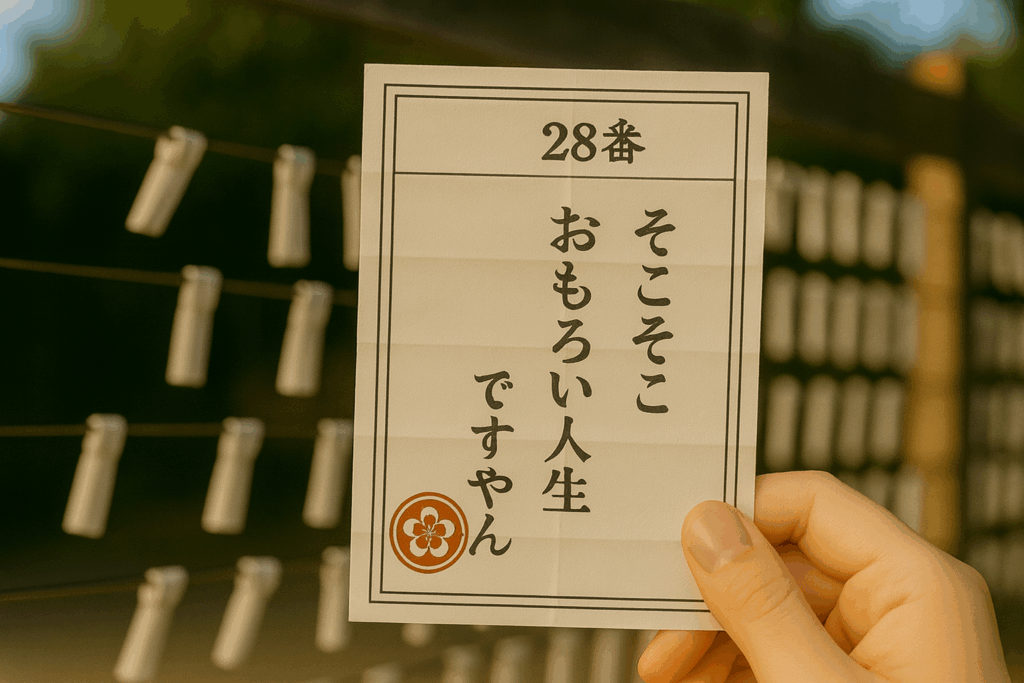 28番
そこそこ
おもろい人生
ですやん